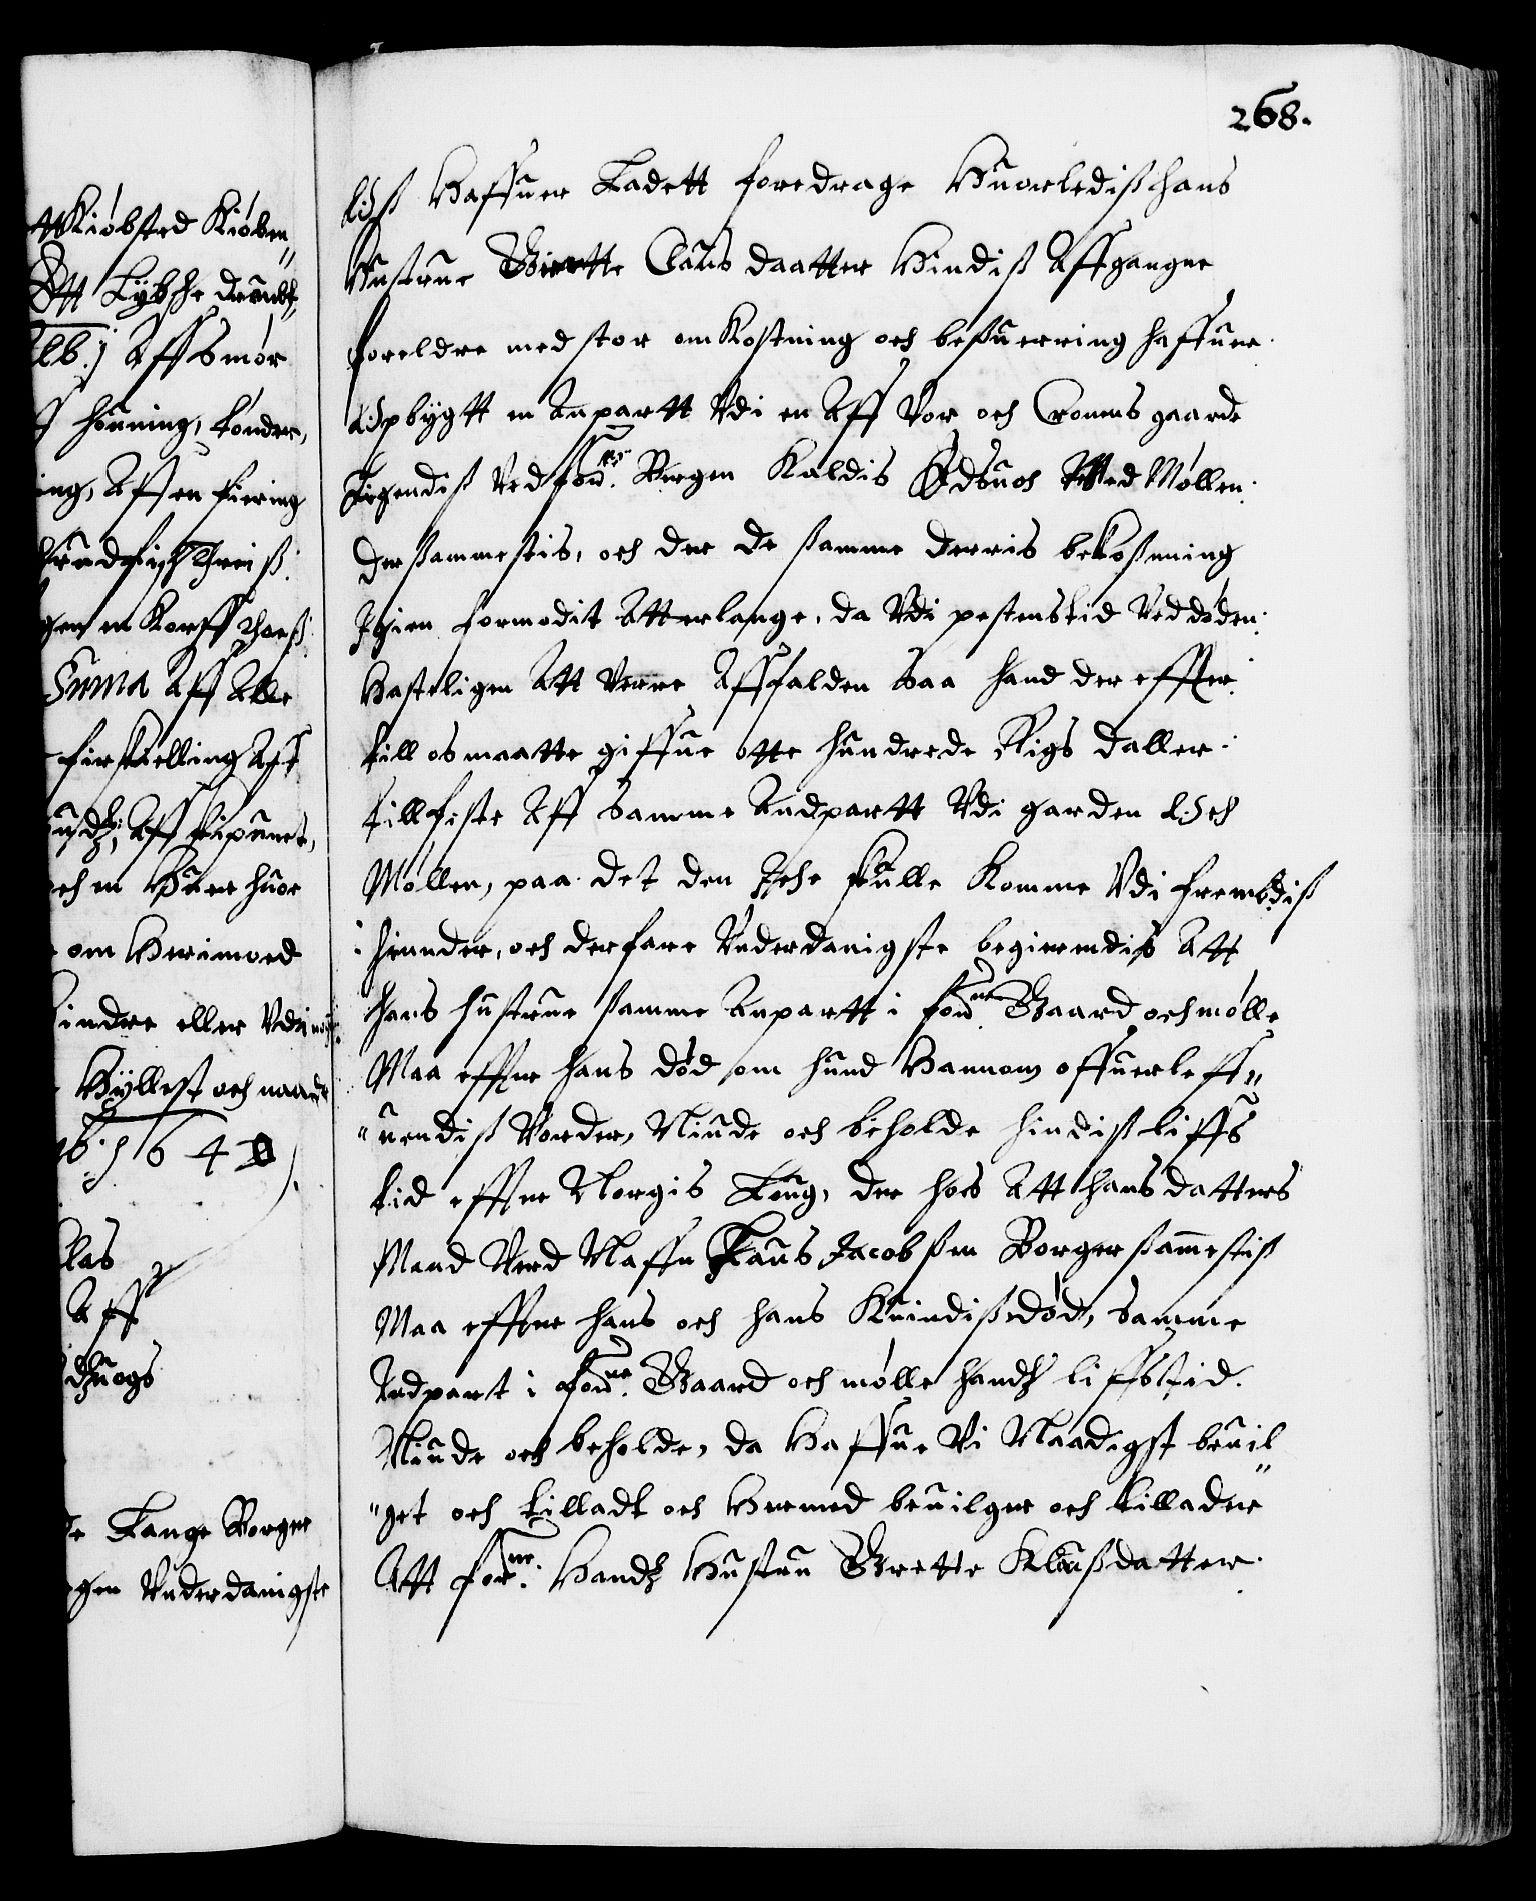 268.
Oß Haffuer Ladett foredrage Huorledisz hans
Hustrue Birette Clausdaatter Hindiß Affgangne
foreldre med stor omKostning och besuerring haffuer
Opbygtt en Anpartt Vdi en Aff Vor och Cronens gaarde
Liggendiß Ved forne: Bergen Kaldis Ødsuoch Med Møllen
der sammestis, och der de samme derris bekostning
Igien formodit Att erlange, da Vdi pestenstid Ved døden
Hasteligen Att Verre Affalden Saa hand der effter
till os maatte giffue otte hundrede Rigs daller
till feste Aff Samme Andpartt Vdi gaarden Och
Møllen, paa det den Iche skulle Komme Vdi frembdiß
hender, och derfore Vnderdanigste begierendis Att
hans hustrue samme Anpartt i forne Gaard och mølle
Maa effter hans død om hund Hannom offuerleff„
„uendiß Vorder, Niude och beholde hindiß liffs
tid effter Norgis Loug, der hos Att hans datters
Mand Ved Naffn Claus Jacobsen Borger sammestiß
Maa effter hans och hans Kuindiß død, Samme
Andpart i forne: Gaard och mølle handz liffstid
Niude och beholde, da Haffue Vi Naadigst beuil„
„get och tilladt och Hermed beuilger och tillader
Att forne: Handz Hustru Grette Klaußdatter
tt Kiøbsted Kiøben„
Ott Lybsche
lb: j Aff Smør
honning, tønder,
ing, Aff en fiering
Summa Aff Alle
firskielling Aff
och en Huer huor
om Herimoed
hindre eller Vdi
Hyllest och naade
1640
las
Aff
Lange Borger
gen Vnderdanigste